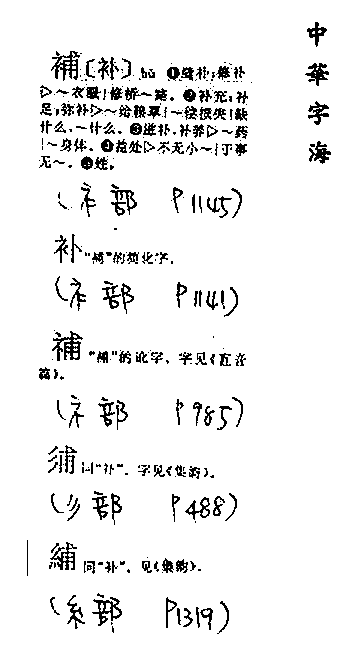 中華字海
補〔补〕bǔ ❶缝补;修补
▷～衣服|修桥～路。❷补充;补
足;弥补▷～给粮草|～偿损失|缺
什么,～什么。❸滋补,补养▷～药
|～身体。❹益处▷不无小～|于事
无～。❺姓。
(衤部 P1145)
补 “補”的简化字。
(衤部 P1141)
補 “補”的讹字。字见《直音
篇》。
(礻部 P985)
同“补”。字见《集韵》。
(彡部 P488)
同“补”。见《集韵》。
(糸部 P1319)